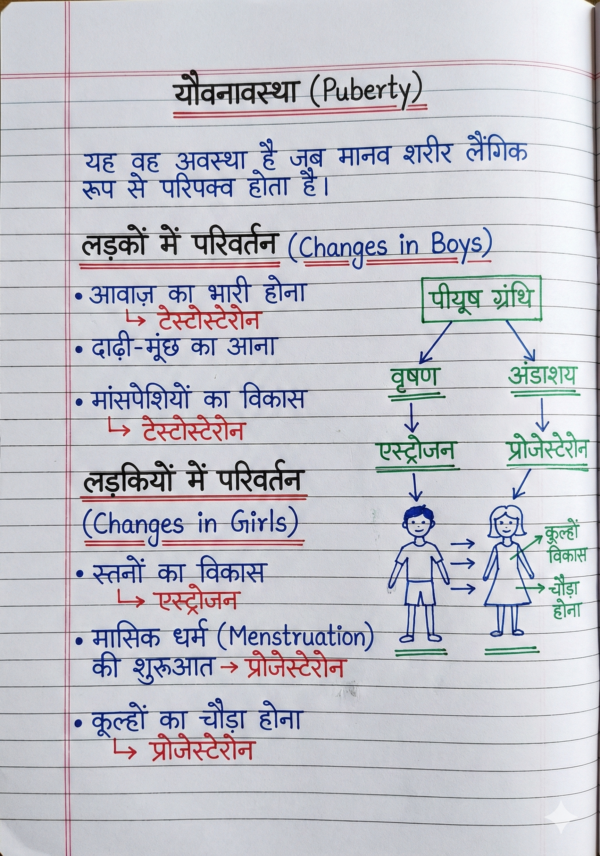 यौवनावस्था (Puberty)
यह वह अवस्था है जब मानव शरीर लैंगिक
रूप से परिपक्व होता है।
लड़कों में परिवर्तन (Changes in Boys)
• आवाज़ का भारी होना
↳ टेस्टोस्टेरोन
• दाढ़ी-मूंछ का आना
• मांसपेशियों का विकास
↳ टेस्टोस्टेरोन
लड़कियों में परिवर्तन
(Changes in Girls)
• स्तनों का विकास
↳ एस्ट्रोजन
• मासिक धर्म (Menstruation)
की शुरूआत → प्रोजेस्टेरोन
• कूल्हों का चौड़ा होना
↳ प्रोजेस्टेरोन
पीयूष ग्रंथि
वृषण
अंडाशय
एस्ट्रोजन
प्रोजेस्टेरोन
कूल्हों
विकास
चौड़ा
होना